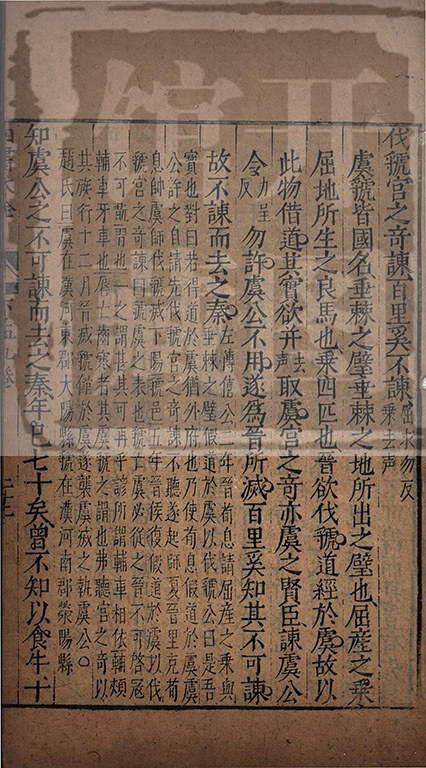 伐虢宮之奇諫百里奚不諫屈求勿反
乗去声
虞虢皆國名垂棘之璧垂棘之地所出之璧也屈產之乗
屈地所生之良馬也乗四匹也晉欲伐虢道經於虞故以
此物借道其實欲并去声取虞宮之奇亦虞之賢臣諫虞公
令力呈反勿許虞公不用遂為晉所滅百里奚知其不可諫
故不諫而去之秦左傳僖公二年晉荀息請屈產之乗與
垂棘之璧假道於虞以伐虢公曰是吾
寳也對曰若得道於虞猶外府也乃使荀息假道於虞虞
公許之自請先伐虢宮之奇諫不聽遂起師夏晉里克荀
息帥虞師伐虢滅下陽虢邑五年晉侯復假道於虞以伐
虢宮之奇諫曰虢虞之表也虢亡虞必從之晉不可啓冦
不可翫習也一之謂甚其可再乎諺所謂輔車相依輔頰
輔車牙車也唇亡齒寒者其虞虢之謂也弗聽宮之奇以
其族行十二月晉滅虢師館於虞遂襲虞滅之執虞公○
趙氏曰虞在漢河東郡大陽縣虢在漢河南郡滎陽縣
知虞公之不可諫而去之秦年已七十矣曾不知以食牛干